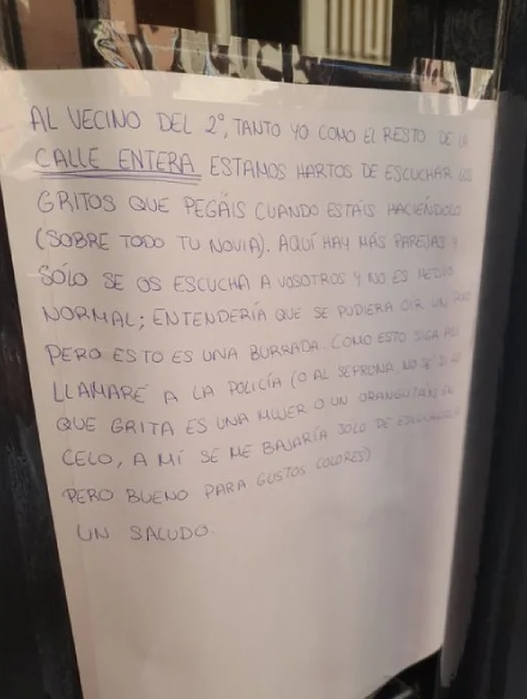 AL VECINO DEL 2º, TANTO YO COMO EL RESTO DE LA
CALLE ENTERA ESTAMOS HARTOS DE ESCUCHAR LOS
GRITOS QUE PEGÁIS CUANDO ESTÁIS HACIÉNDOLO
(SOBRE TODO TU NOVIA). AQUÍ HAY MÁS PAREJAS Y
SÓLO SE OS ESCUCHA A VOSOTROS Y NO ES MEDIO
NORMAL; ENTENDERÍA QUE SE PUDIERA OIR UN POCO
PERO ESTO ES UNA BURRADA. COMO ESTO SIGA ASÍ
LLAMARÉ A LA POLICÍA (O AL SEPRONA, NO SÉ SI LO
QUE GRITA ES UNA MUJER O UN ORANGUTÁN EN
CELO, A MÍ SE ME BAJARÍA SOLO DE ESCUCHARLA
PERO BUENO PARA GUSTOS COLORES)
UN SALUDO.